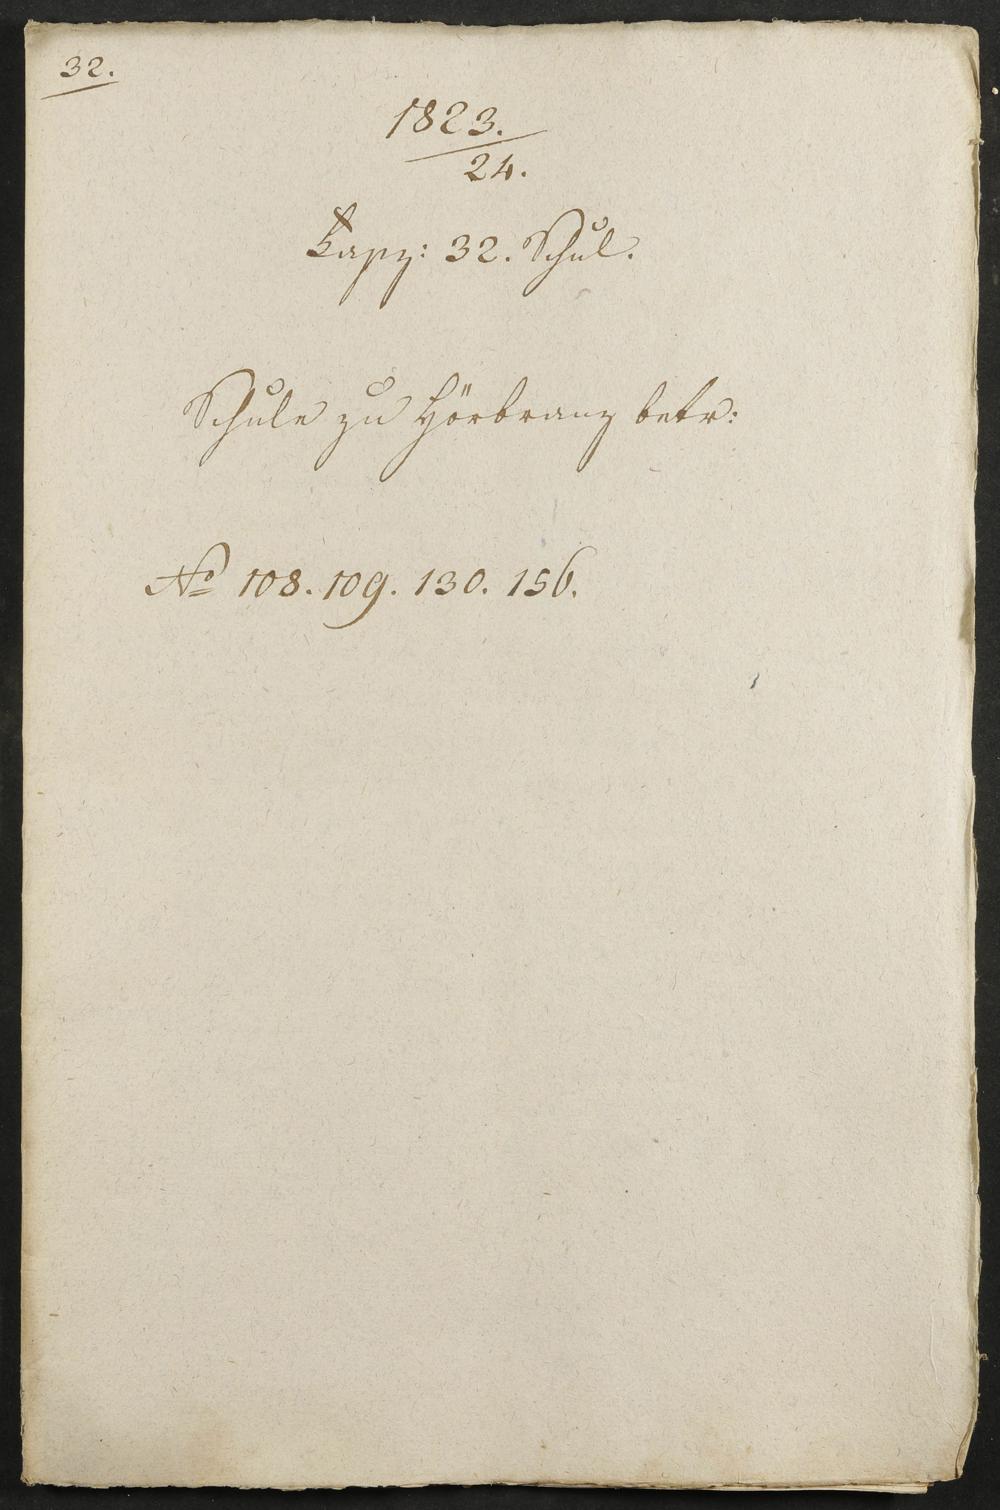 32.
1823.
24.
Fasz: 32. Schul.
Schule zu Hörbranz betr:
No 108. 109. 130. 156.